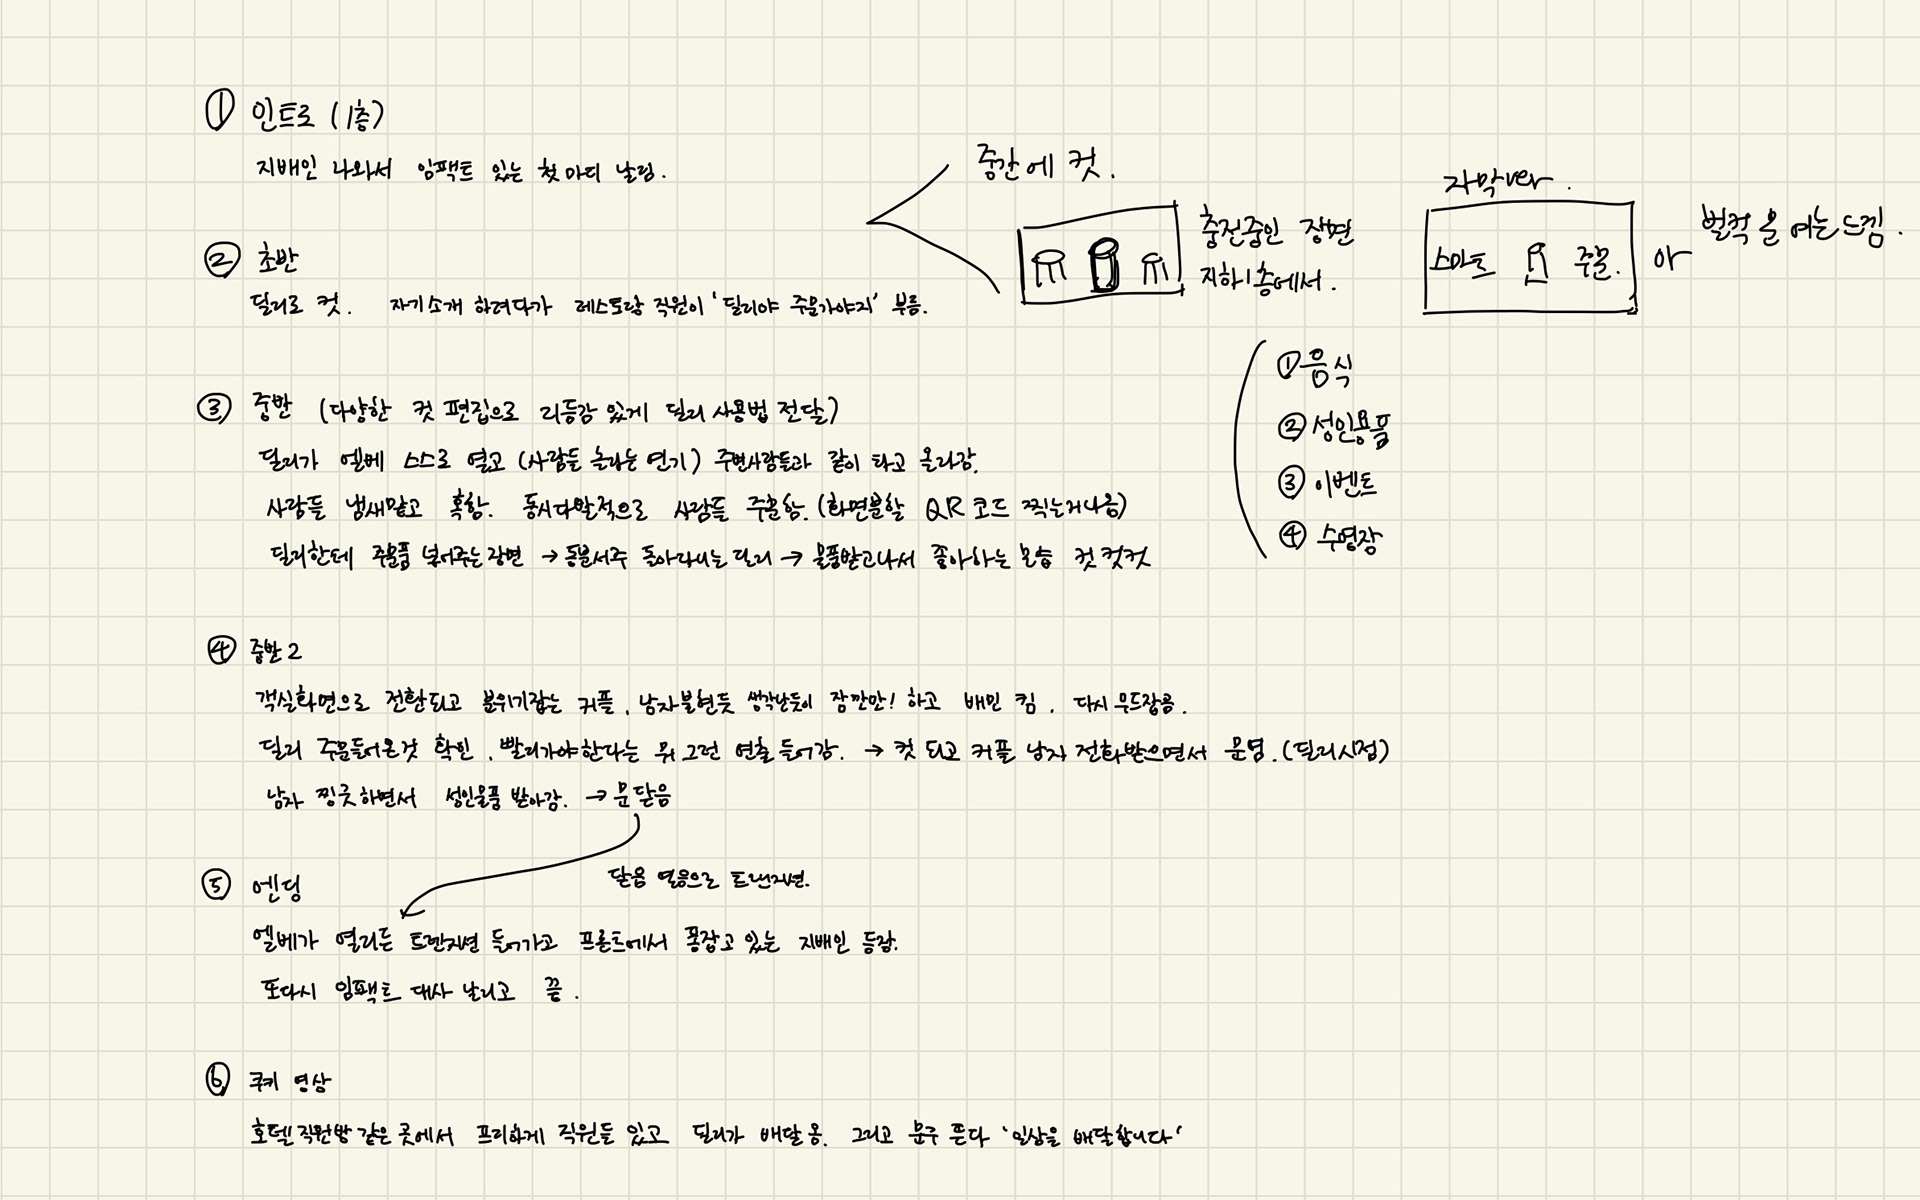 ① 인트로 (1층)
지배인 나와서 임팩트 있는 첫마디 날림.
② 초반
딜리로 컷. 자기소개 하려다가 레스토랑 직원이 '딜리야 주문가야지' 부름.
중간에 컷.
충전중인 장면
지하1층에서.
자막ver.
스마트 주문.
아
벌컥 문 여는 느낌.
③ 중반 (다양한 컷 편집으로 리듬감 있게 딜리 사용법 전달)
딜리가 엘베 스스로 열고 (사람들 놀라는 연기) 주변사람들과 같이 타고 올라감.
사람들 냄새맡고 혹함. 동시다발적으로 사람들 주문함. (화면분할 QR 코드 찍는거 나옴)
딜리한테 주문품 넣어주는 장면 → 동분서주 돌아다니는 딜리 → 물품받고나서 좋아하는 모습 컷 컷컷
① 음식
② 성인용품
③ 이벤트
④ 수영장
④ 중반 2
객실화면으로 전환되고 분위기잡는 커플, 남자 불현듯 생각난듯이 잠깐만! 하고 배민 킴. 다시 무드잡음.
딜리 주문들어온것 확인, 빨리가야한다는 뭐 그런 연출 들어감. → 컷 되고 커플 남자 전화받으면서 문염. (딜리시점)
남자 찡긋하면서 성인용품 받아감. → 문닫음
닫음 열음으로 트랜지션.
⑤ 엔딩
엘베가 열리든 트랜지션 들어가고 프론트에서 폼잡고 있는 지배인 등장.
또다시 임팩트 대사 날리고 끝.
⑥ 쿠키 영상
호텔 직원방 같은 곳에서 프리하게 직원들 있고 딜리가 배달 옴. 그리고 문구 뜬다 '일상을 배달합니다'